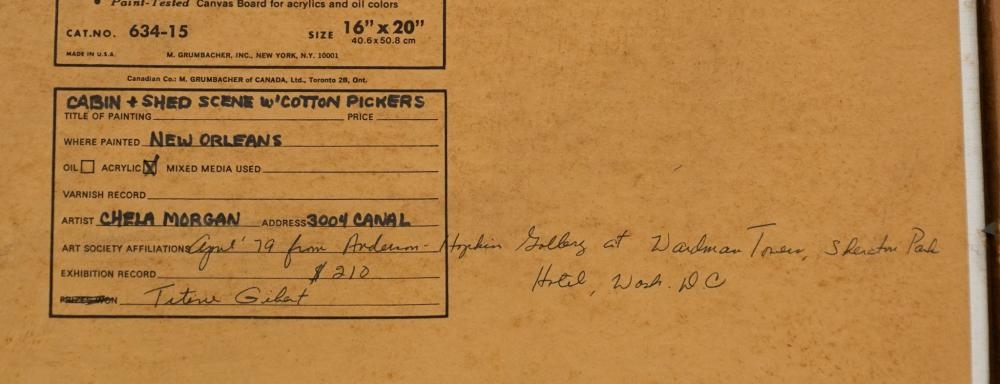 • Paint-Tested Canvas Board for acrylics and oil colors
CAT.NO. 634-15 SIZE 16" x 20"
40.6 x 50.8 cm
MADE IN U.S.A. M. GRUMBACHER, INC., NEW YORK, N.Y. 10001
Canadian Co.: M. GRUMBACHER of CANADA, Ltd., Toronto 2B, Ont.
CABIN + SHED SCENE W' COTTON PICKERS
TITLE OF PAINTING PRICE
WHERE PAINTED NEW ORLEANS
OIL ACRYLIC MIXED MEDIA USED
VARNISH RECORD
ARTIST CHELA MORGAN ADDRESS 3004 CANAL
ART SOCIETY AFFILIATIONS April '79 from Anderson-Hopkin Gallery at Wardman Tower, Sheraton Park
EXHIBITION RECORD $210 Hotel, Wash. DC